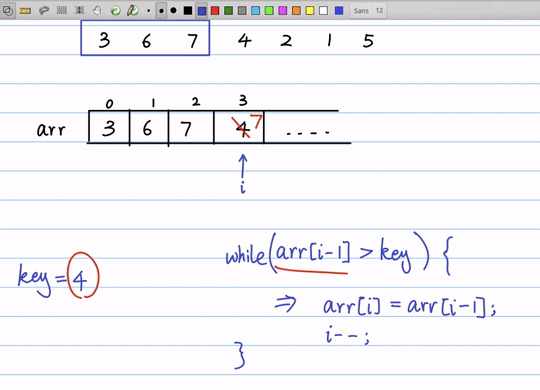 Sans 12
3 6 7 4 2 1 5
0 1 2 3
arr 3 6 7 4 7 ....
i
while(arr[i-1] > key) {
key = 4
⇒ arr[i] = arr[i-1];
i--;
}